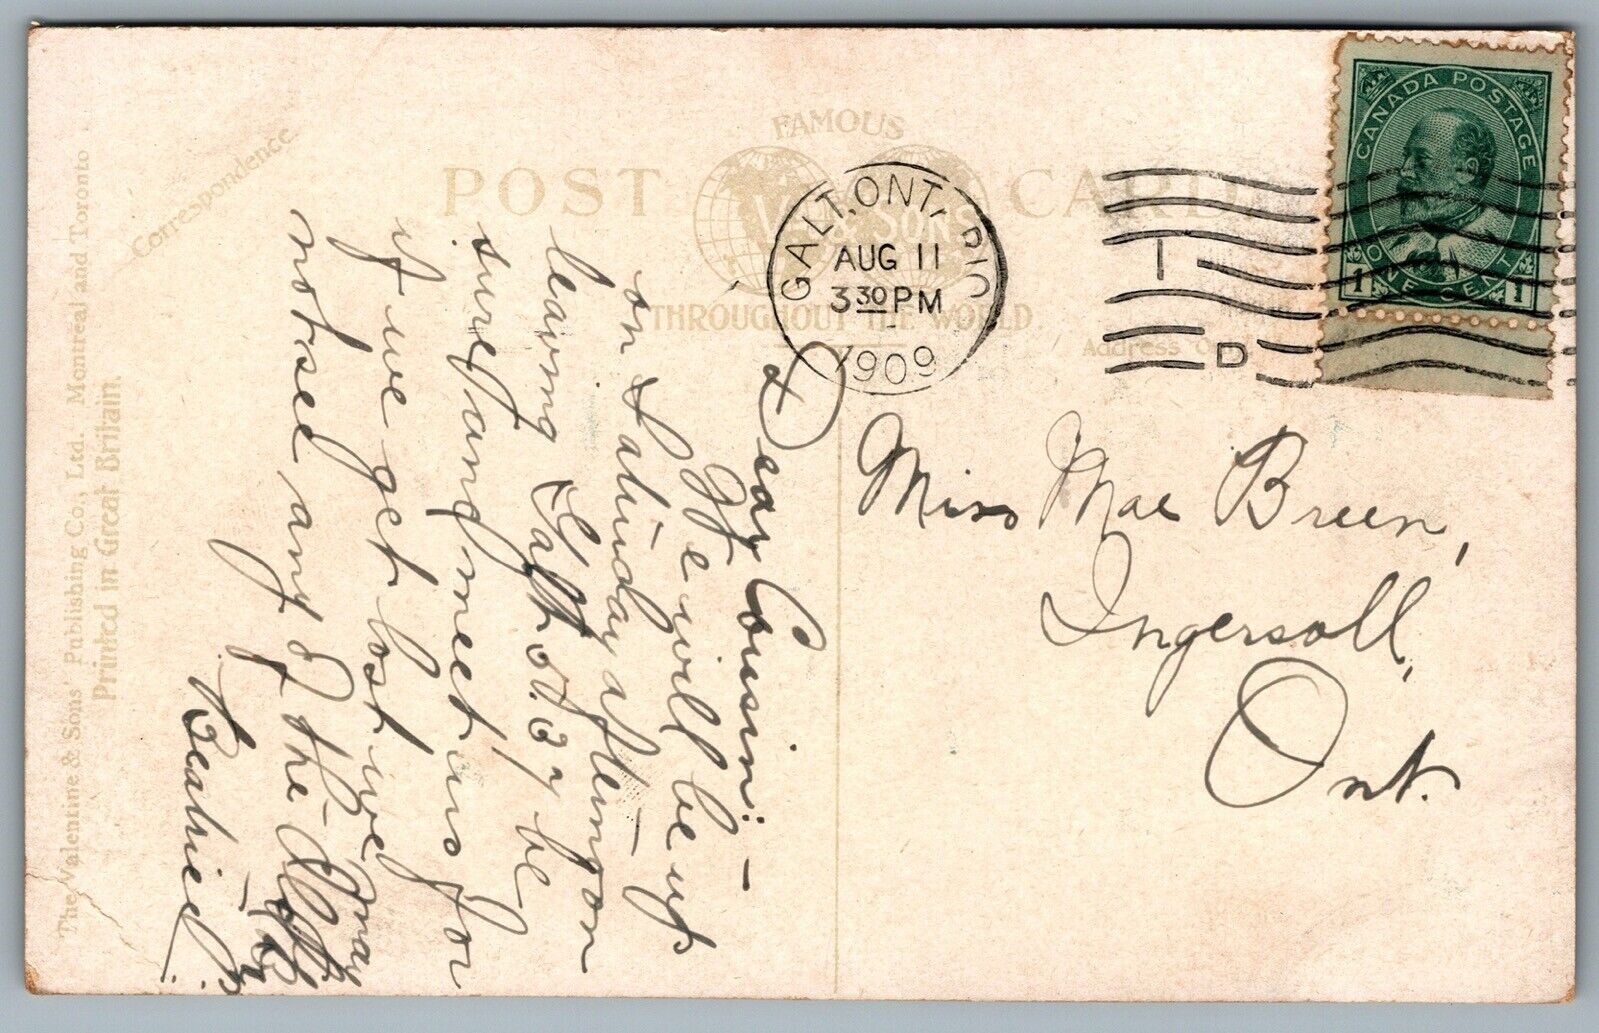 The Valentine & Sons' Publishing Co., Ltd. Montreal and Toronto
Printed in Great Britain.
Correspondence
FAMOUS
POST CARD
& SONS
THROUGHOUT THE WORLD
Address
GALT, ONTARIO
AUG 11
3 30 PM
1909
I
D
CANADA POSTAGE
1 ONE CENT 1
Dear Cousin:-
We will be up
on Saturday afternoon
leaving Galt at 2.27 be
sure and meet us for
if we get lost we may
not see any of the
Beatrice
Miss Mae Breen,
Ingersoll,
Ont.